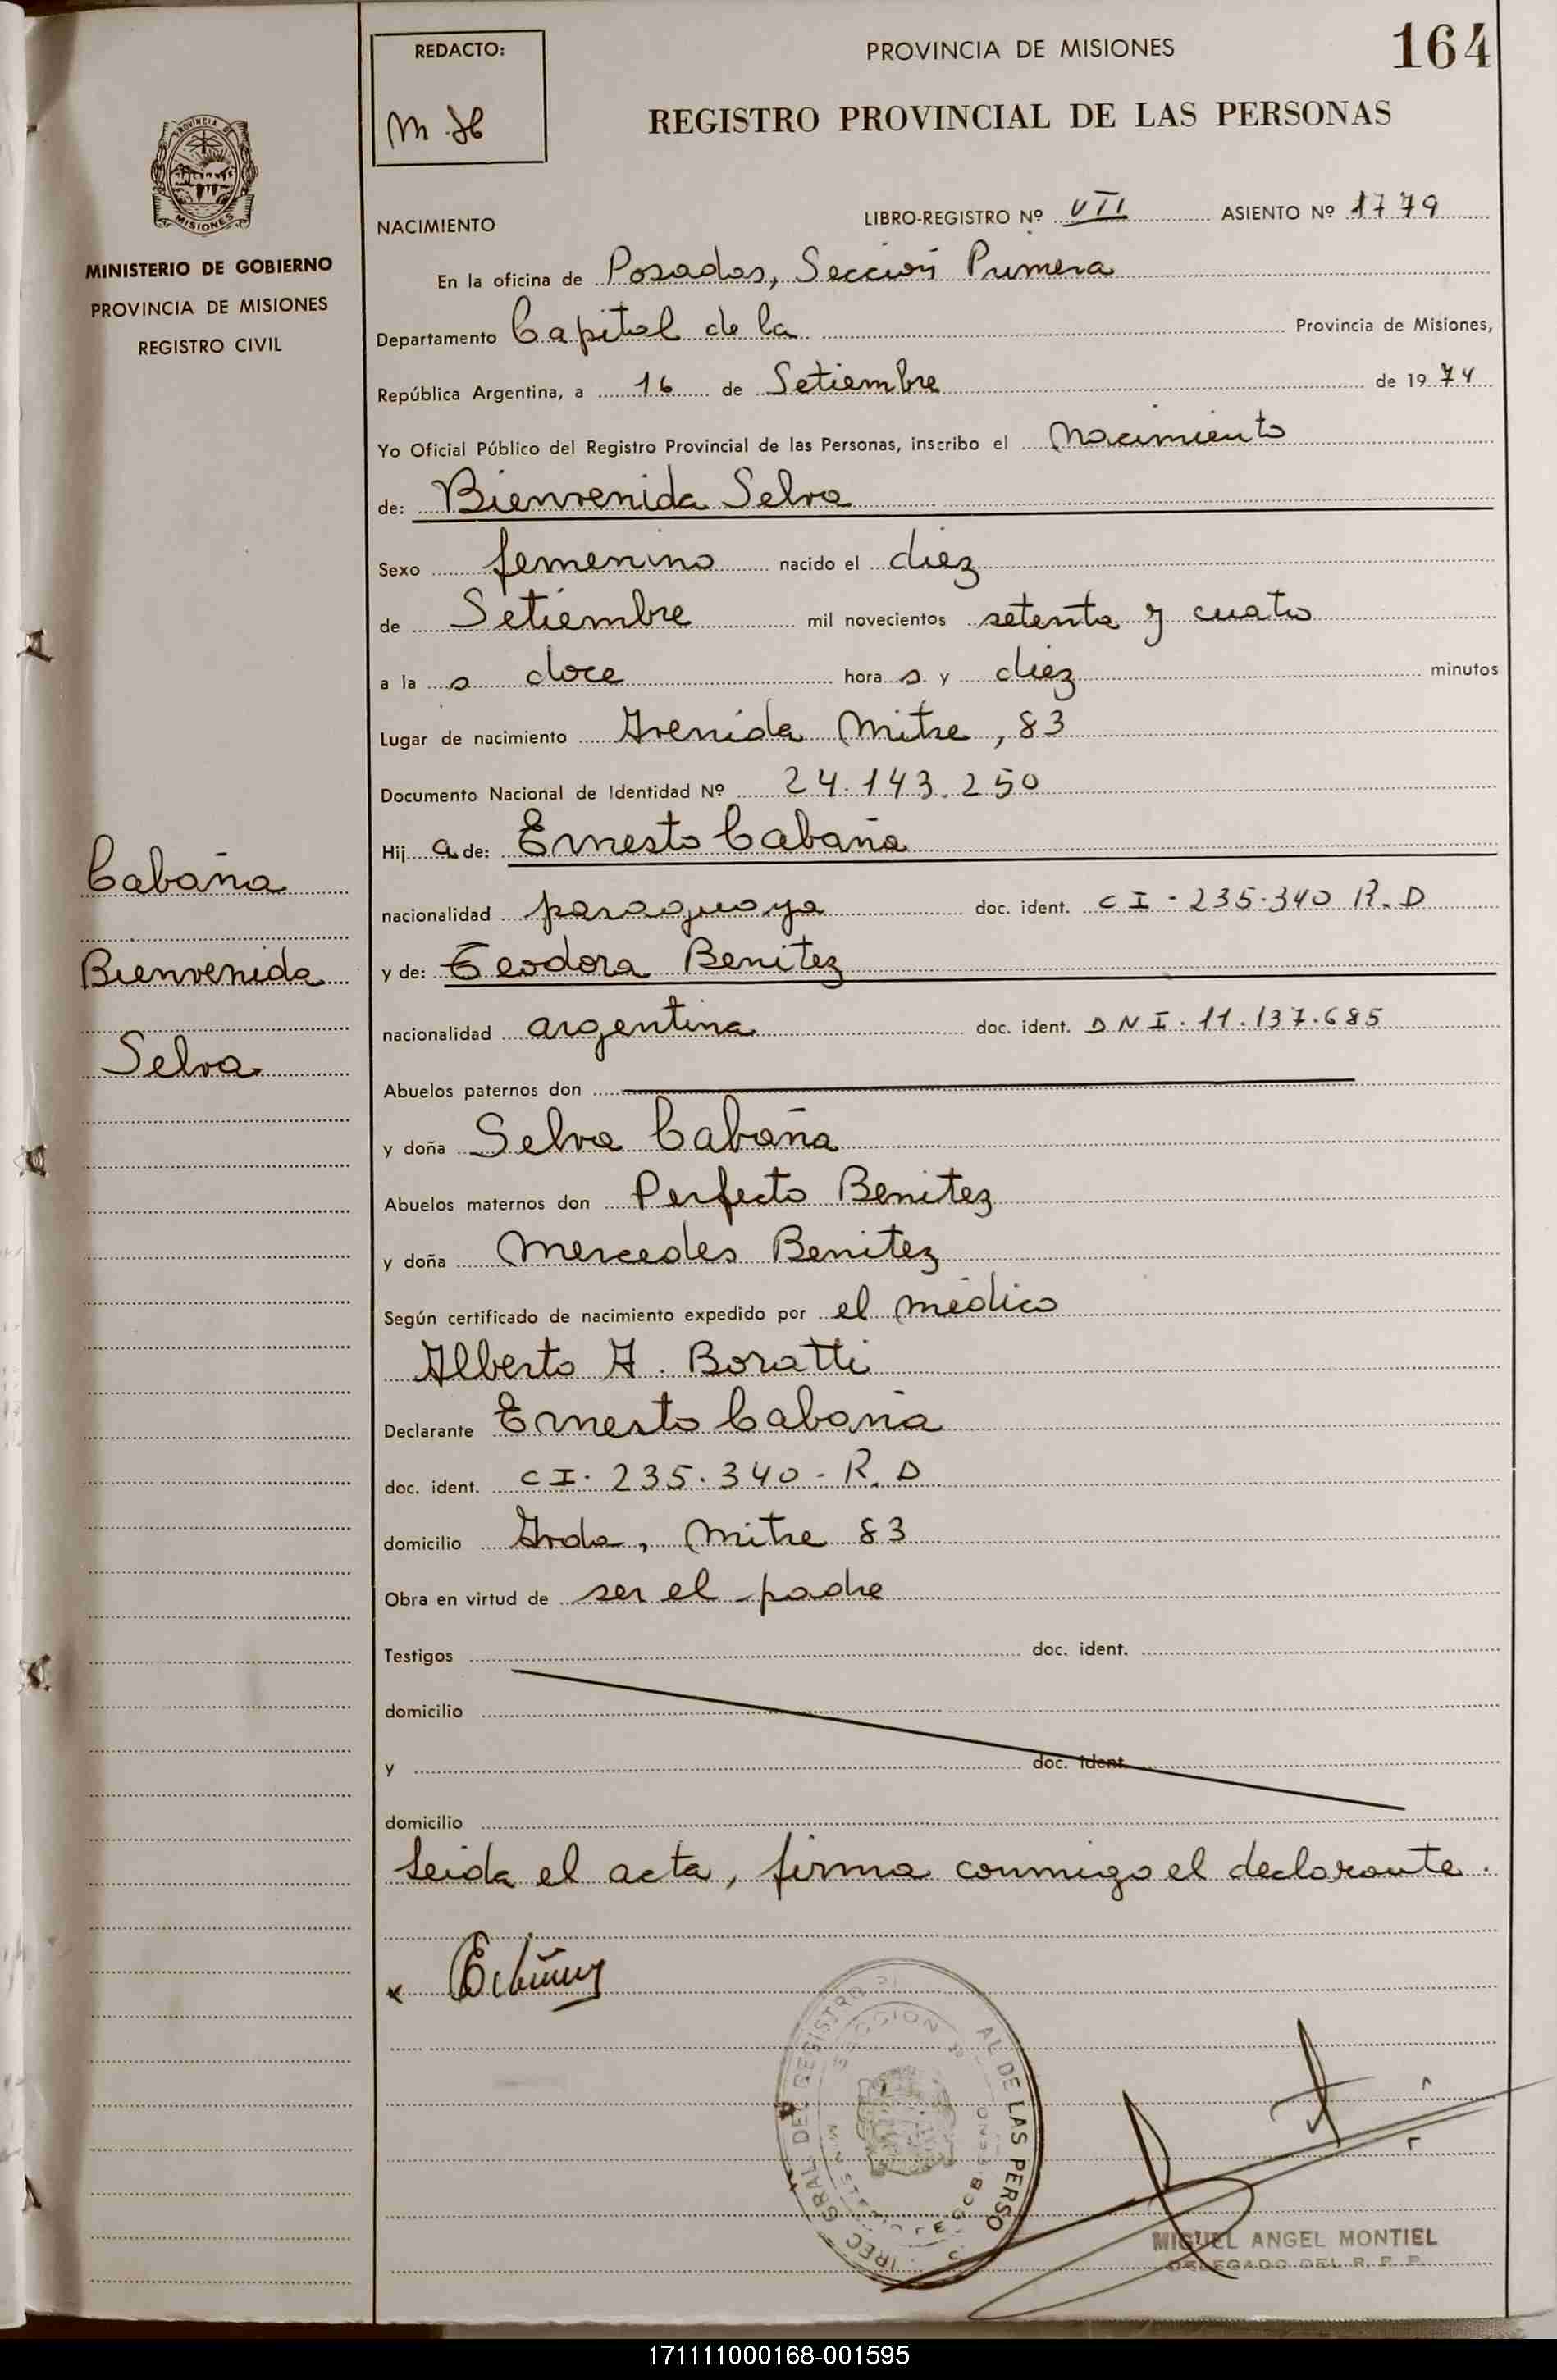 REDACTO:
M.H
PROVINCIA DE MISIONES
164
REGISTRO PROVINCIAL DE LAS PERSONAS
PROVINCIA DE
MISIONES
MINISTERIO DE GOBIERNO
PROVINCIA DE MISIONES
REGISTRO CIVIL
NACIMIENTO
LIBRO-REGISTRO Nº VII ASIENTO Nº 1779
En la oficina de Posadas, Sección Primera
Departamento Capital de la Provincia de Misiones,
República Argentina, a 16 de Setiembre de 1974
Yo Oficial Público del Registro Provincial de las Personas, inscribo el Nacimiento
de: Bienvenida Selva
Sexo femenino nacido el diez
de Setiembre mil novecientos setenta y cuato
a la s doce hora s y diez minutos
Lugar de nacimiento Avenida Mitre, 83
Documento Nacional de Identidad Nº 24.143.250
Hij a de: Ernesto Cabaña
nacionalidad paraguaya doc. ident. CI - 235.340 R.D
y de: Teodora Benitez
nacionalidad argentina doc. ident. DNI. 11.137.685
Abuelos paternos don
y doña Selva Cabaña
Abuelos maternos don Perfecto Benitez
y doña Mercedes Benitez
Según certificado de nacimiento expedido por el médico
Alberto A. Boratti
Declarante Ernesto Cabaña
doc. ident. CI. 235.340 - R.D
domicilio Avda, Mitre 83
Obra en virtud de ser el padre
Testigos doc. ident.
domicilio
y doc. ident.
domicilio
Leida el acta, firma conmigo el declarante.
Cabaña
Bienvenida
Selva
x
MIGUEL ANGEL MONTIEL
DELEGADO DEL R. P. P.
171111000168-001595